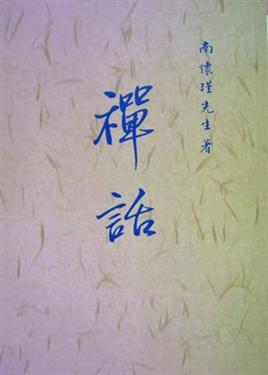 南懷瑾先生著
禪話